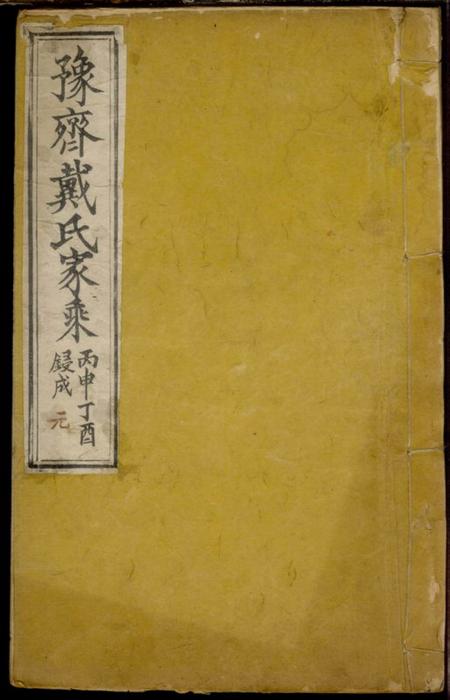 豫齊戴氏家乘
丙申丁酉
鋟成
元